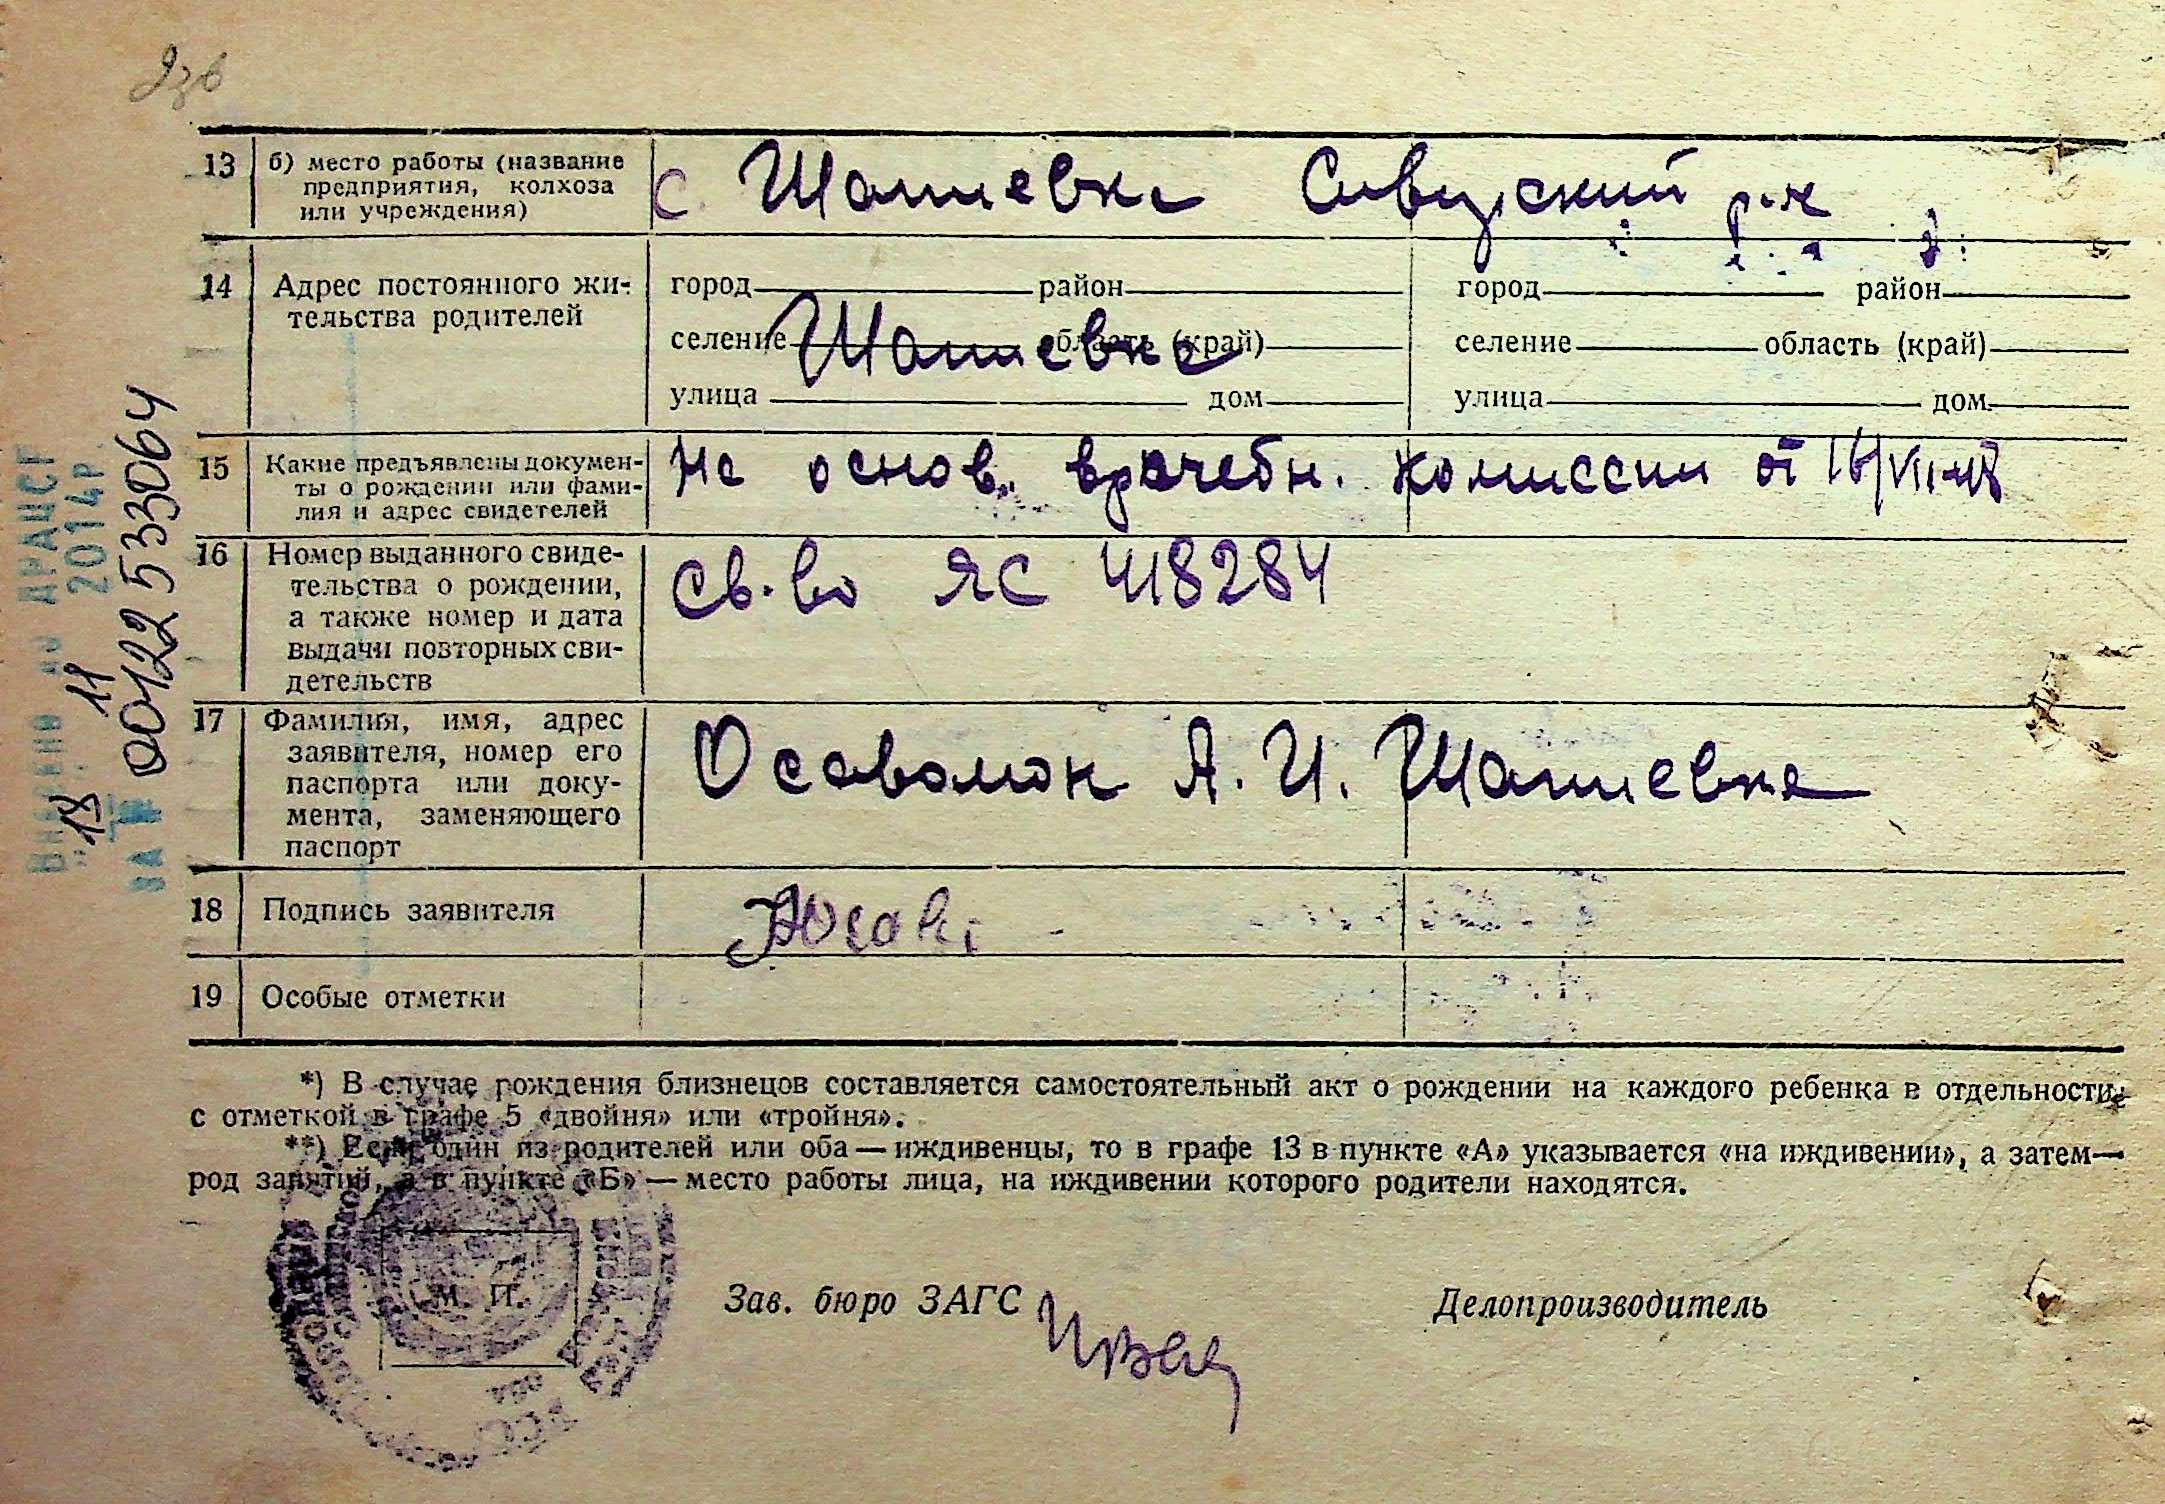 13 б) место работы (название
предприятия, колхоза
или учреждения)
с. Шатиевка р-н
14 Адрес постоянного жи-
тельства родителей
город район
селение Шатиевка область (край)
улица дом
город район
селение область (край)
улица дом
15 Какие предъявлены докумен-
ты о рождении или фами-
лия и адрес свидетелей
На основ. врачебн. комиссии от
16 Номер выданного свиде-
тельства о рождении,
а также номер и дата
выдачи повторных сви-
детельств
Св-во ЯС 418284
17 Фамилия, имя, адрес
заявителя, номер его
паспорта или доку-
мента, заменяющего
паспорт
А. И. Шатиевка
18 Подпись заявителя
19 Особые отметки
*) В случае рождения близнецов составляется самостоятельный акт о рождении на каждого ребенка в отдельности
с отметкой в графе 5 «двойня» или «тройня».
**) Если один из родителей или оба — иждивенцы, то в графе 13 в пункте «А» указывается «на иждивении», а затем —
род занятий, а в пункте «Б» — место работы лица, на иждивении которого родители находятся.
М. П.
Зав. бюро ЗАГС
Делопроизводитель
Внесено до ДРАЦСГ
"13" 11 2014р.
за № 00122533064